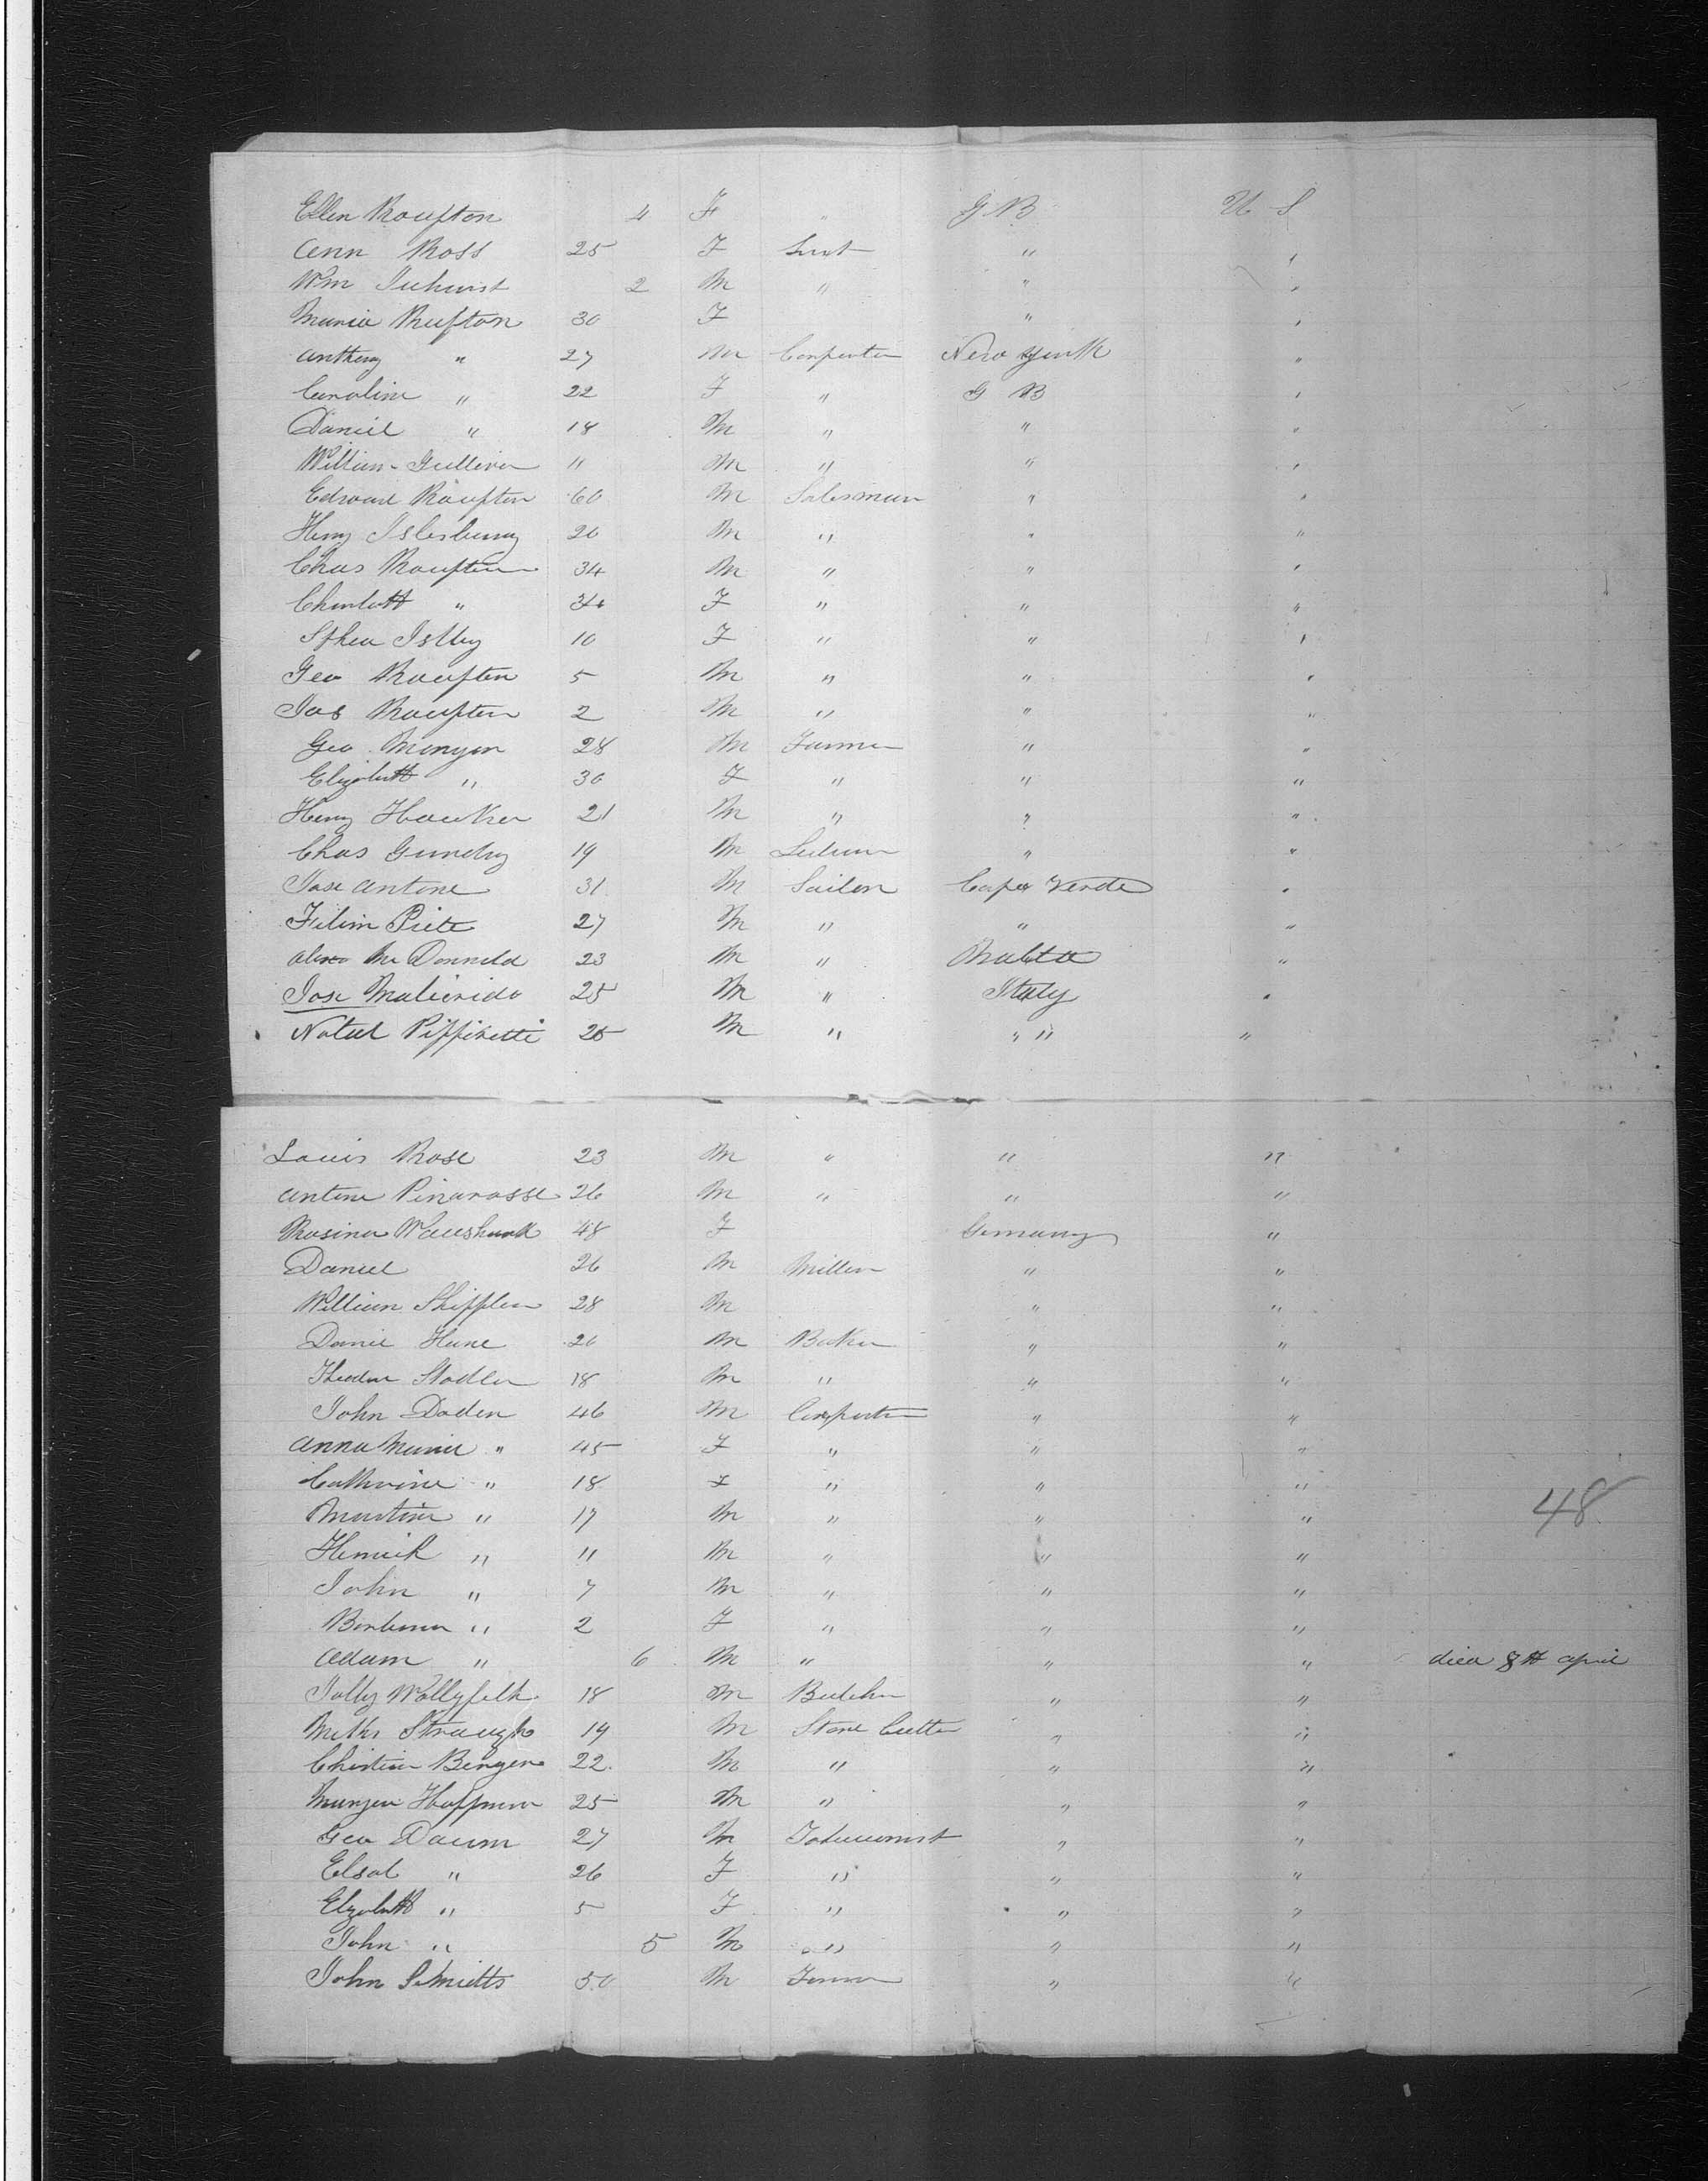 Ellen Roufton 4 F " G B U S
Ann Ross 25 F " "
Wm 2 M " " "
Maria Rufton 30 F " "
Anthony " 27 M Carpenter New York "
Caroline " 22 F " G B "
Daniel " 18 M " " "
William Gulliver 11 M " " "
Edward Roufton 60 M Salesman " "
Henry Islesbury 20 M " " "
Chas Roufton 34 M " " "
Charlott " 34 F " " "
10 F " " "
Geo Roufton 5 M " " "
Jas Roufton 2 M " " "
Geo Mongon 28 M Farmer " "
Elizabeth " 30 F " " "
Henry Hawker 21 M " " "
Chas Gundry 19 M " "
Jose Antone 31 M Sailor Cape Verde "
27 M " " "
Alexo McDonneld 23 M " Malta "
Jose 25 M " Italy "
Natul Piffiretti 25 M " " " "
Louis Rose 23 M " " "
Antone Pinarosse 26 M " " "
Rosina 48 F Germany "
Daniel 26 M Miller " "
William Shiffler 28 M " "
Daniel Hune 20 M Baker " "
Theodor Stadler 18 M " " "
John Doden 46 M Carpenter " "
Anna Maria " 45 F " " "
Cathrine " 18 F " " "
Martin " 17 M " " "
48
Henrich " 11 M " " "
John " 7 M " " "
Barbara " 2 F " " "
Adam " 6 M " " " died 8th April
18 M Butcher " "
19 M Stone Cutter " "
Christian Benger 22 M " " "
Hoffman 25 M " " "
Geo Daum 27 M " "
Elsal " 26 F " " "
Elizabeth " 5 F " " "
John " 5 M " " "
John Schmidts 50 M Farmer " "